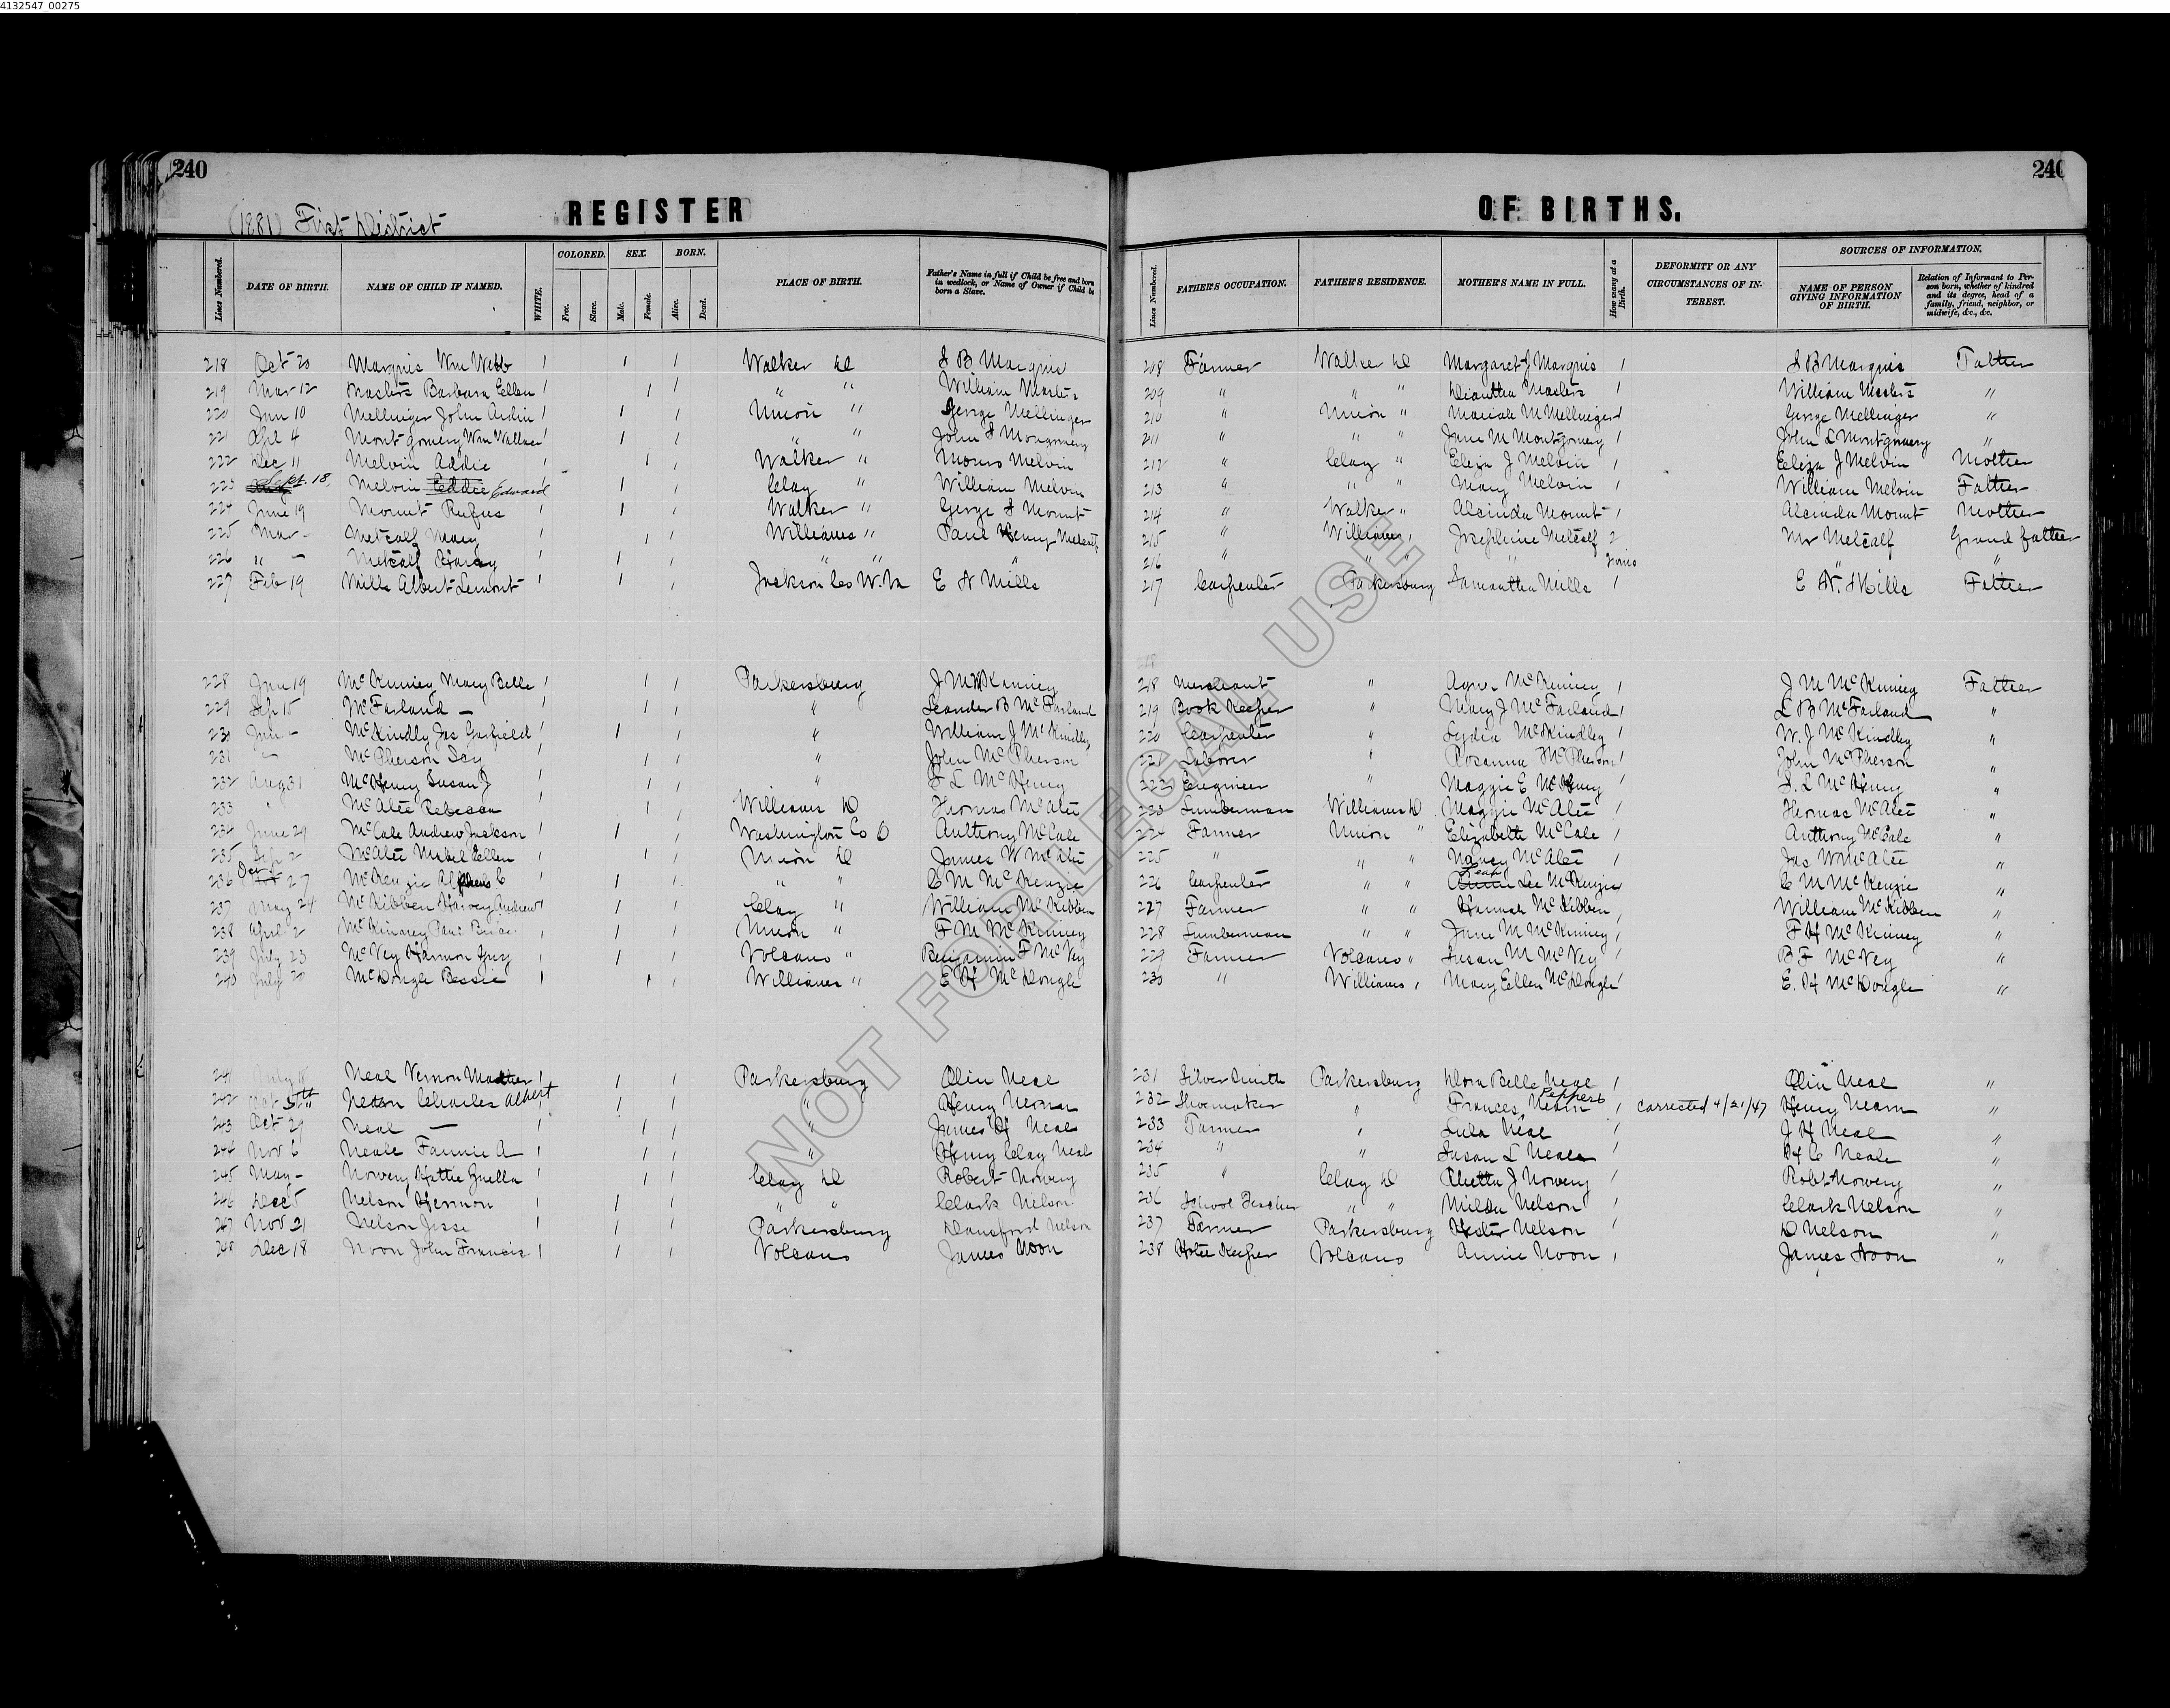 4132547_00275
240
240
(1881) First District
REGISTER
OF BIRTHS.
Lines Numbered.
DATE OF BIRTH.
NAME OF CHILD IF NAMED.
WHITE.
COLORED.
Free.
Slave.
SEX.
Male.
Female.
BORN.
Alive.
Dead.
PLACE OF BIRTH.
Father's Name in full if Child be free and born
in wedlock, or Name of Owner if Child be
born a Slave.
Lines Numbered.
FATHER'S OCCUPATION.
FATHER'S RESIDENCE.
MOTHER'S NAME IN FULL.
How many at a
Birth.
DEFORMITY OR ANY
CIRCUMSTANCES OF IN-
TEREST.
SOURCES OF INFORMATION.
NAME OF PERSON
GIVING INFORMATION
OF BIRTH.
Relation of Informant to Per-
son born, whether of kindred
and its degree, head of a
family, friend, neighbor, or
midwife, &c., &c.
218 Oct 20 Marquis Wm Webb 1 1 1 Walker D S B Marquis 208 Farmer Walker D Margaret J Marquis 1 S B Marquis Father
219 Mar 12 Masters Barbara Ellen 1 1 1 " " William Masters 209 " " " Diantha Masters 1 William Masters "
220 Jun 10 Mellinger John 1 1 1 Union " George Mellinger 210 " Union " Mariah M Mellinger 1 George Mellinger "
221 Apl 4 Montgomery Wm Wallace 1 1 1 " " John S Mongomery 211 " " " Jane M Montgomery 1 John S Montgomery "
222 Dec 11 Melvin Addie 1 1 1 Walker " Moses Melvin 212 " Clay " Eliza J Melvin 1 Eliza J Melvin Mother
223 Sept. 18, Melvin Eddie Edward 1 1 1 Clay " William Melvin 213 " " " Mary Melvin 1 William Melvin Father
224 June 19 Mount Rufus 1 1 1 Walker " George S Mount 214 " Walker " Alcinda Mount 1 Alcinda Mount Mother
225 Mar - Metcalf Mary 1 1 1 Williams " Paul Henry Metcalf 215 " Williams " Josephine Metcalf 2 Wm Metcalf Grand father
226 " - Metcalf Harry 1 1 1 " " " 216 " " " Twins " "
227 Feb 19 Mills Albert Lemont 1 1 1 Jackson Co W.Va E N Mills 217 Carpenter Parkersburg Samantha Mills 1 E N. Mills Father
228 Jun 19 McKinney Mary Belle 1 1 1 Parkersburg J M McKinney 218 Merchant " McKinney 1 J M McKinney Father
229 Sep 15 McFarland - 1 1 1 " Leander B McFarland 219 Book Keeper " Mary J McFarland 1 L B McFarland "
230 Jun - McKindly Jas Garfield 1 1 1 " William J McKindley 220 Carpenter " Lydia McKindley 1 W. J McKindley "
231 - McPherson 1 1 1 " John McPherson 221 Laborer " Rosanna McPherson 1 John McPherson "
232 Aug 31 McHenry Susan J 1 1 1 " S L McHenry 222 Engineer " Maggie E McHenry 1 S. L McHenry "
233 " McAtee Rebecca 1 1 1 Williams D Thomas McAtee 223 Lumberman Williams D Maggie McAtee 1 Thomas McAtee "
234 June 29 McCale Andrew Jackson 1 1 1 Washington Co O Anthony McCale 224 Farmer Union " Elizabeth McCale 1 Anthony McCale "
235 Sep 2 McAtee Mabel Ellen 1 1 1 Union D James W McAtee 225 " " " Nancy McAtee 1 Jas W McAtee "
236 27 McKenzie Alpheus C 1 1 1 " " C M McKenzie 226 Carpenter " " Leah Lee McKenzie 1 C M McKenzie "
237 May 24 McKibben Harvey Andrew 1 1 1 Clay " William McKibben 227 Farmer " " Hannah McKibben 1 William McKibben "
238 April 2 McKinney Paul 1 1 1 Union " F M McKinney 228 Lumberman " " Jane M McKinney 1 F H McKinney "
239 July 23 McVey Harmon Guy 1 1 1 Volcano " Benjamin F McVey 229 Farmer Volcano " Susan M McVey 1 B F McVey "
240 July 20 McDougle Bessie 1 1 1 Williams " E H McDougle 230 " Williams " Mary Ellen McDougle 1 E. H McDougle "
241 July Neal Vernon 1 1 1 Parkersburg Olin Neal 231 Silver Smith Parkersburg Dora Belle Neal 1 Olin Neal "
242 Oct Charles Albert 1 1 1 " Henry 232 Shoemaker " Frances Peppers 1 Corrected 4/21/47 Henry "
243 Oct 29 Neal - 1 1 1 " James H Neal 233 Farmer " Lula Neal 1 J H Neal "
244 Nov 6 Neale Fannie A 1 1 1 " Henry Clay Neal 234 " " Susan L Neale 1 H C Neale "
245 May - Nowery Hattie 1 1 1 Clay D Robert Nowery 235 " Clay D J Nowery 1 Robt Nowery "
246 Dec 5 Nelson Hermon 1 1 1 " " Clark Nelson 236 School Teacher " " Nelson 1 Clark Nelson "
247 Nov 21 Nelson Jesse 1 1 1 Parkersburg Dansford Nelson 237 Farmer Parkersburg Hester Nelson 1 D Nelson "
248 Dec 18 Noon John Francis 1 1 1 Volcano James Noon 238 Hotel Keeper Volcano Annie Noon 1 James Noon "
NOT FOR LEGAL USE